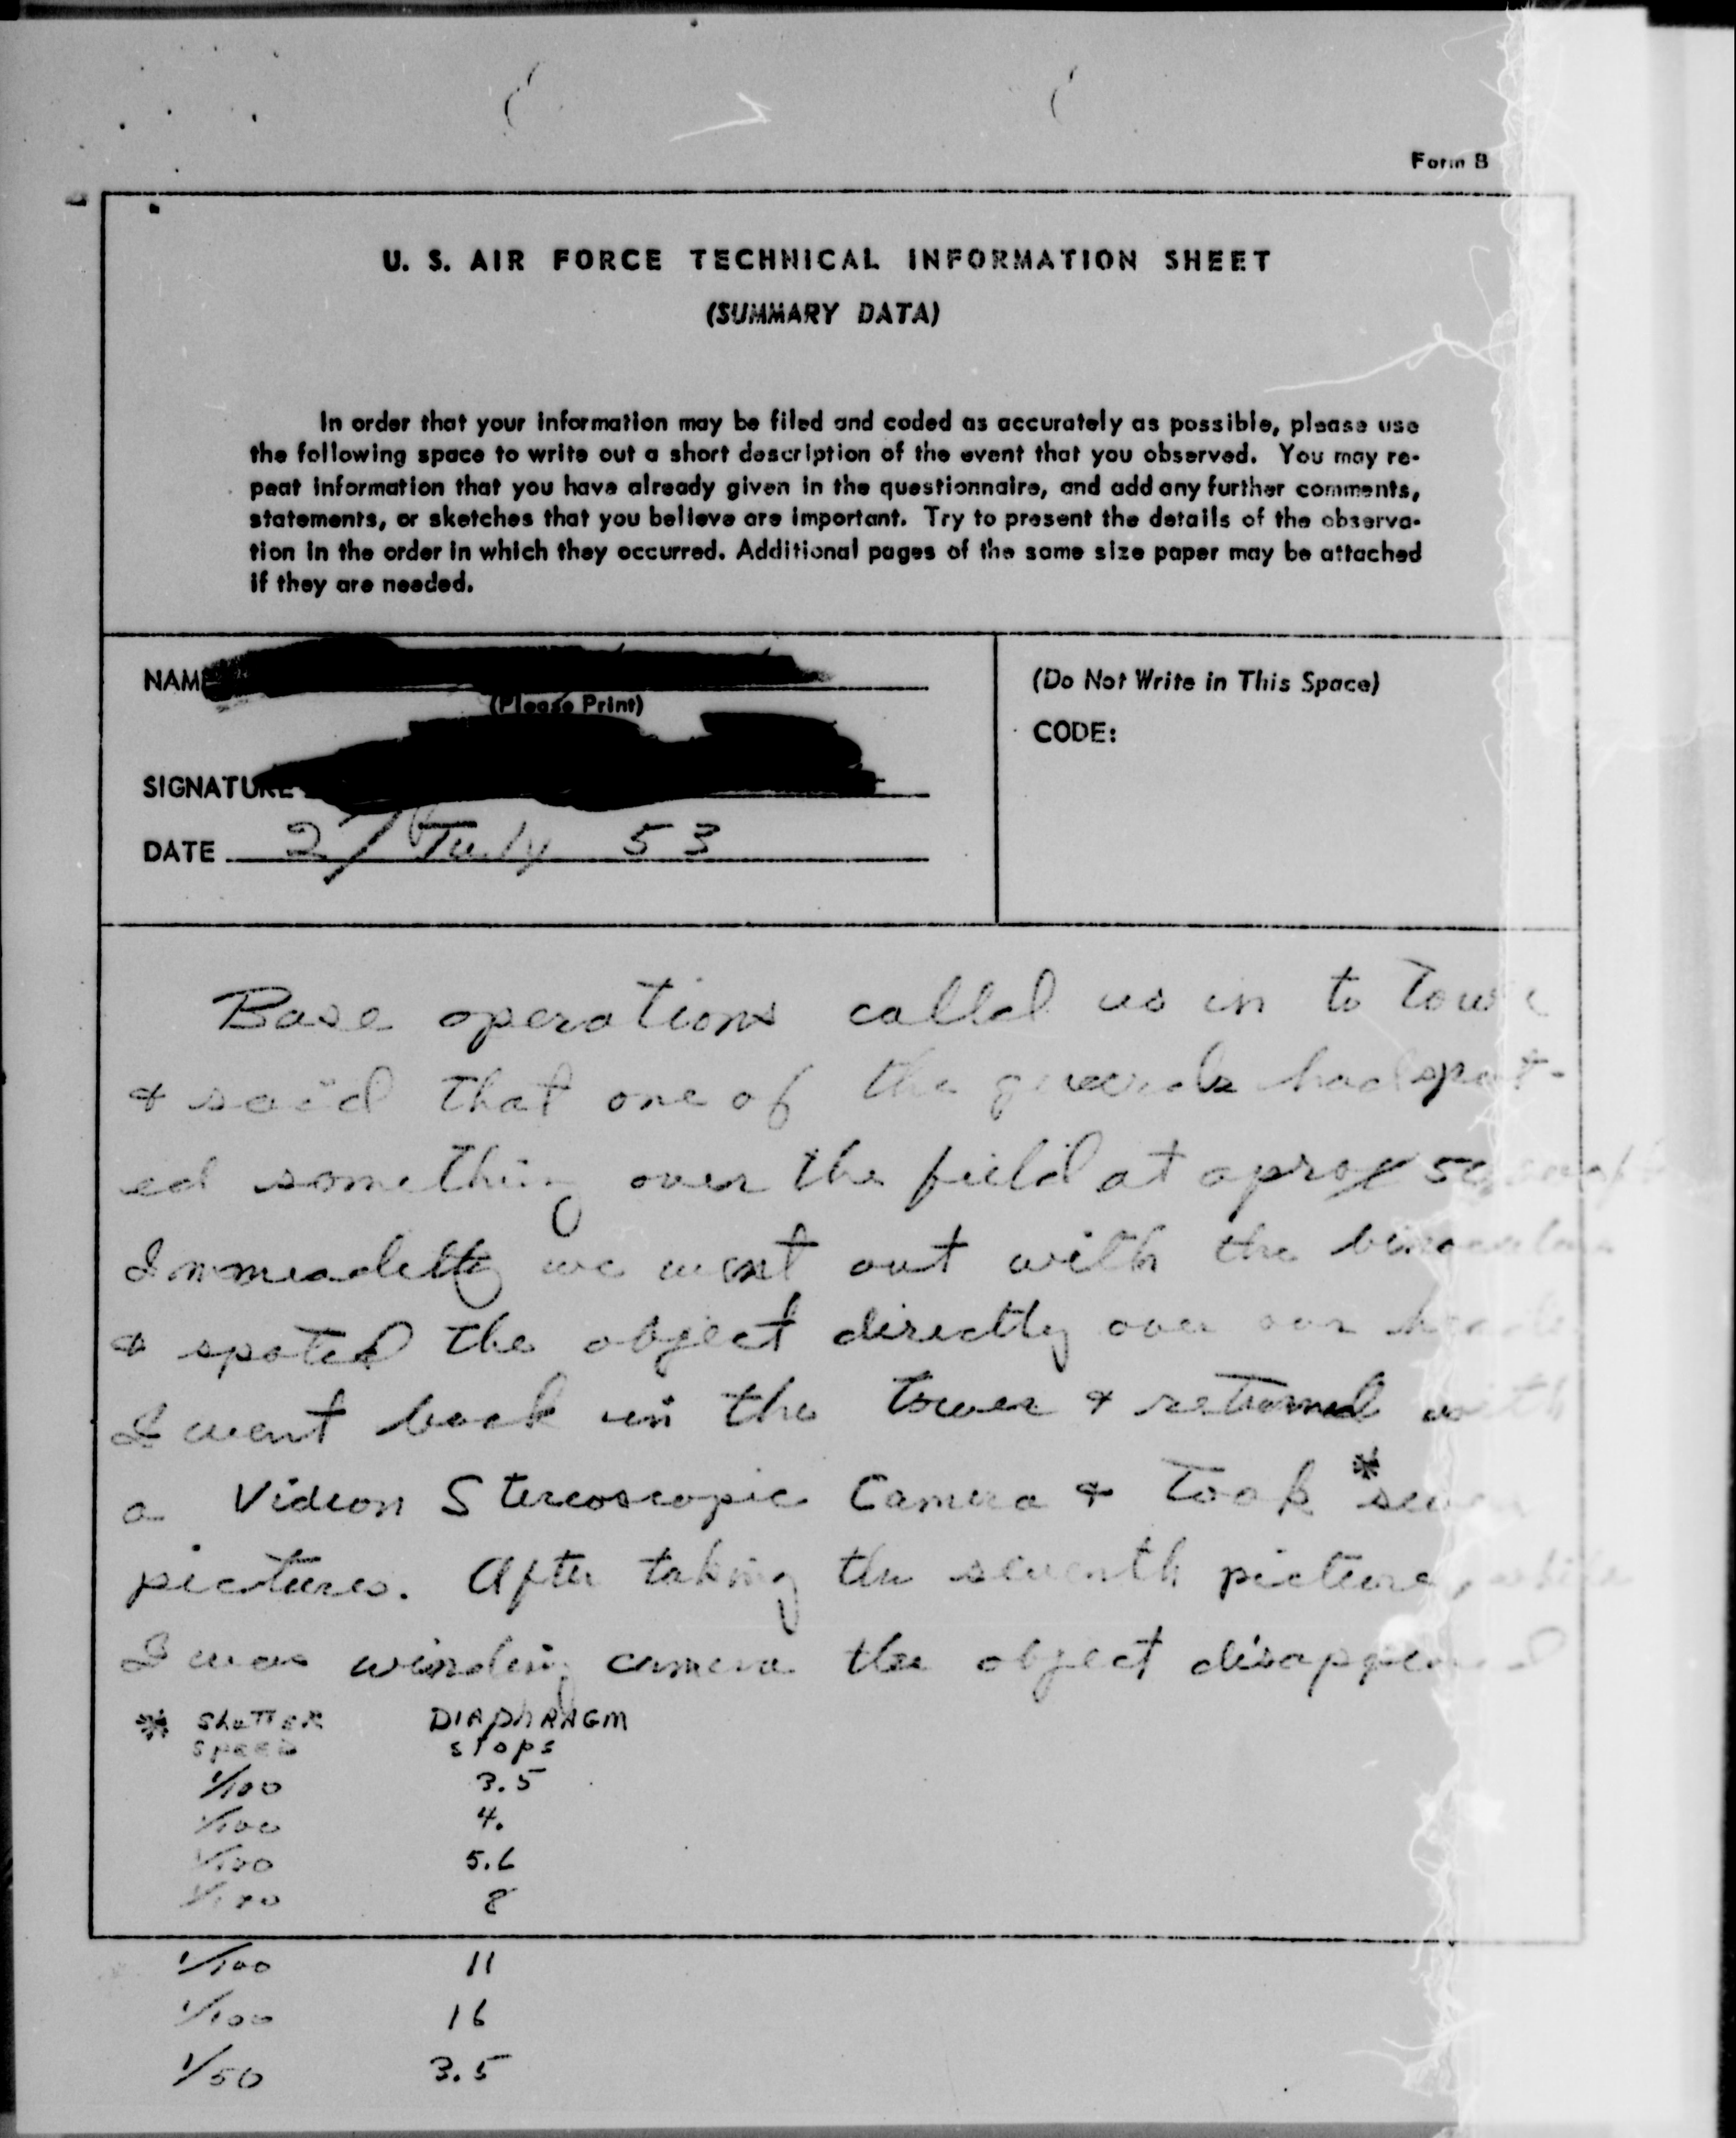 Form B
U. S. AIR FORCE TECHNICAL INFORMATION SHEET
(SUMMARY DATA)
In order that your information may be filed and coded as accurately as possible, please use
the following space to write out a short description of the event that you observed. You may re-
peat information that you have already given in the questionnaire, and add any further comments,
statements, or sketches that you believe are important. Try to present the details of the observa-
tion in the order in which they occurred. Additional pages of the same size paper may be attached
if they are needed.
NAME
(Please Print)
SIGNATURE
DATE 27 July 53
(Do Not Write in This Space)
CODE:
Base operations called us in to
& said that one of the guards had spot-
ed something over the field at aprox
we went out with the binoculars
& spoted the object directly over our heads
I went back in the tower & returned with
a Videon Stereoscopic Camera & Took * seven
pictures. After taking the seventh picture, while
I was winding camera the object disappeared
* ShuTTER DIAphRAGM
SPEED sTops
1/100 3.5
1/100 4.
1/100 5.6
1/100 8
1/100 11
1/100 16
1/50 3.5